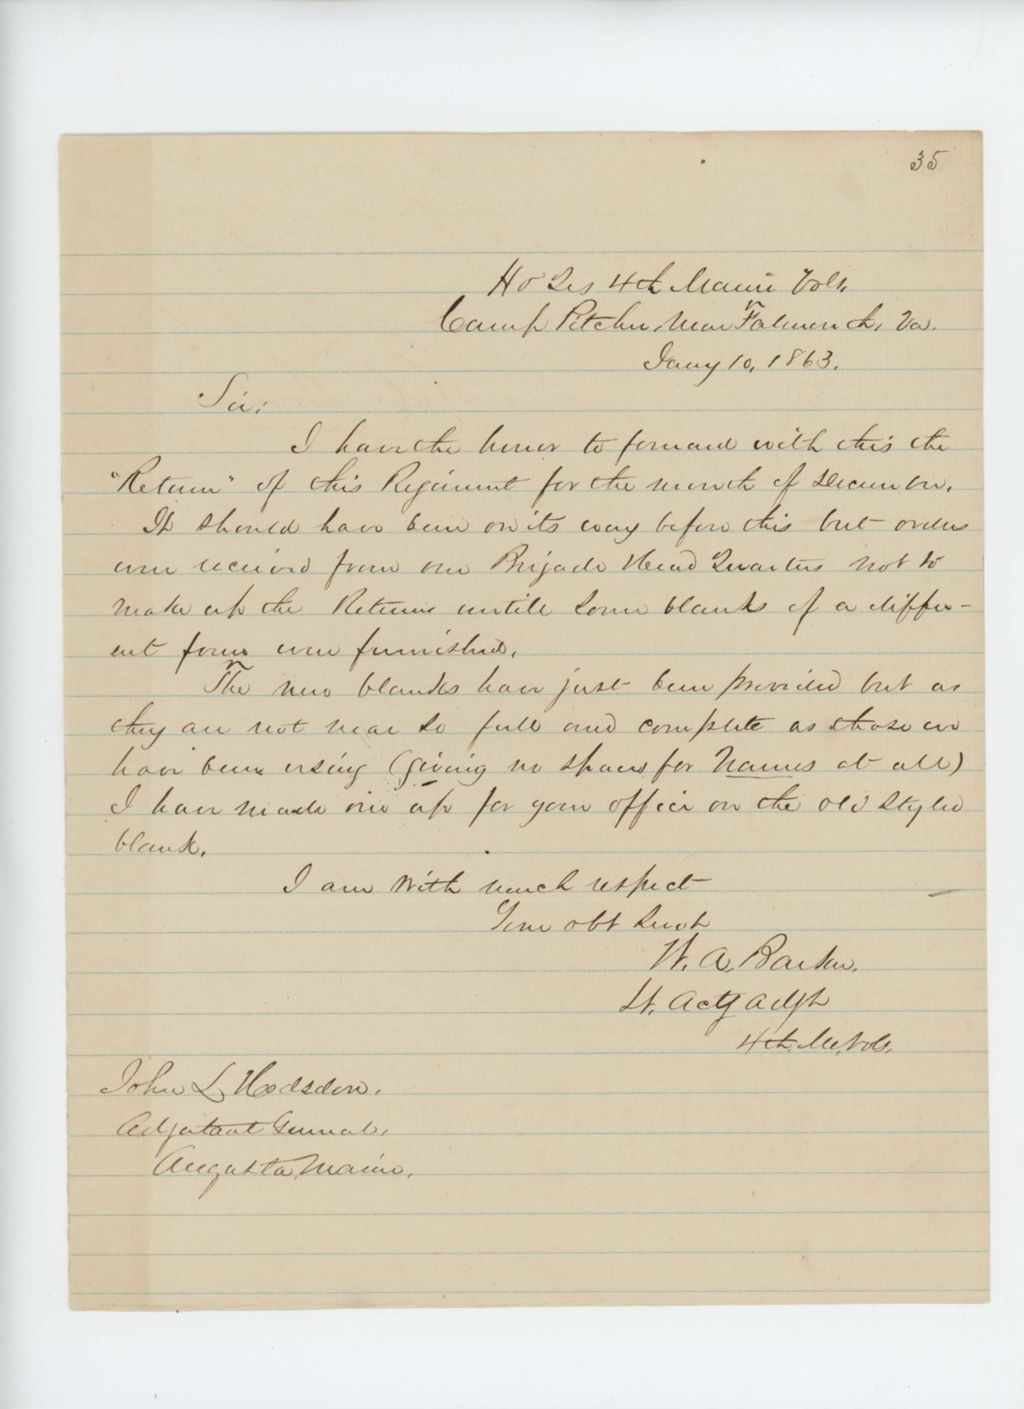 35
Hd Qrs 4th Maine Vols.
Camp Pitcher, near Falmouth, Va.
Jany 10, 1863.
Sir:
I have the honor to forward with this the
"Return" of this Regiment for the month of December.
It should have been on its way before this but orders
were received from our Brigade Head Quarters not to
make up the Returns untill some blanks of a differ-
ent form were furnished.
The new blanks have just been provided but as
they are not near so full and complete as those we
have been using (giving no spaces for Names at all)
I have made one up for your office on the old styled
blank.
I am with much respect
Your obt Servt
W. A. Barker.
Lt. Actg Adjt
4th Me. Vols.
John L Hodsdon.
Adjutant General.
Augusta, Maine.